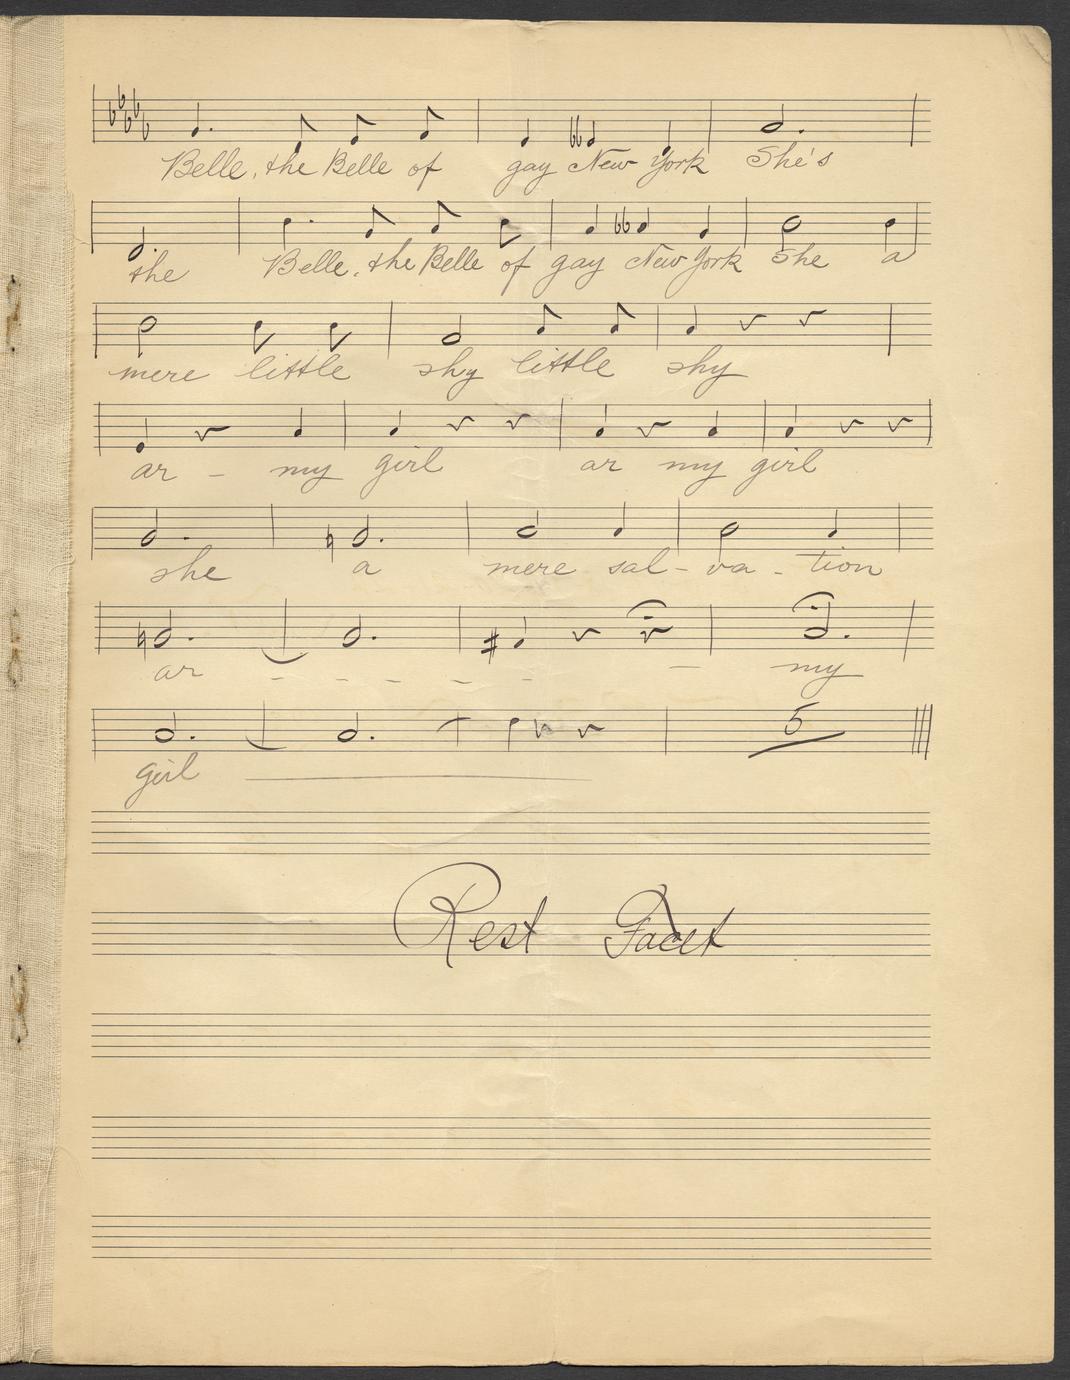 Belle, the Belle of gay New York She's
the Belle, the Belle of gay New York She a
mere little shy little shy
ar - my girl ar my girl
she a mere sal - va - tion
ar - - - - - - - my
5
girl
Rest Facet